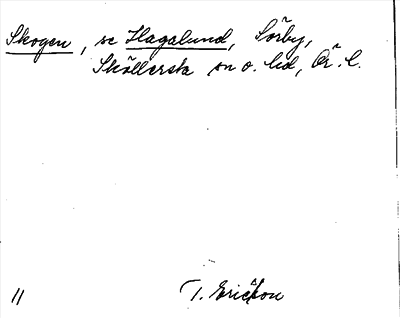 Skogen, se Hagalund, Sörby,
Sköllersta sn o. hd, Ör. l.
11
T. Ericson